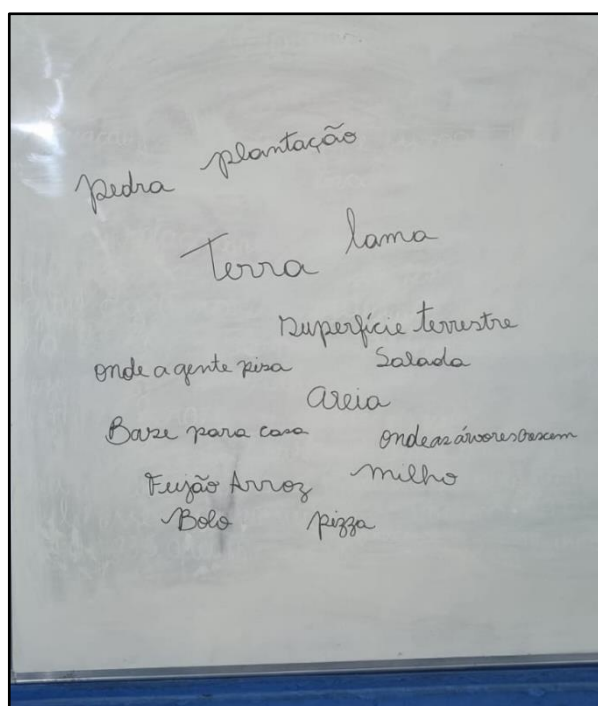 plantação
pedra
lama
Terra
Superfície terrestre
onde a gente pisa Salada
areia
Base para casa onde as árvores crescem
Feijão Arroz milho
Bolo pizza